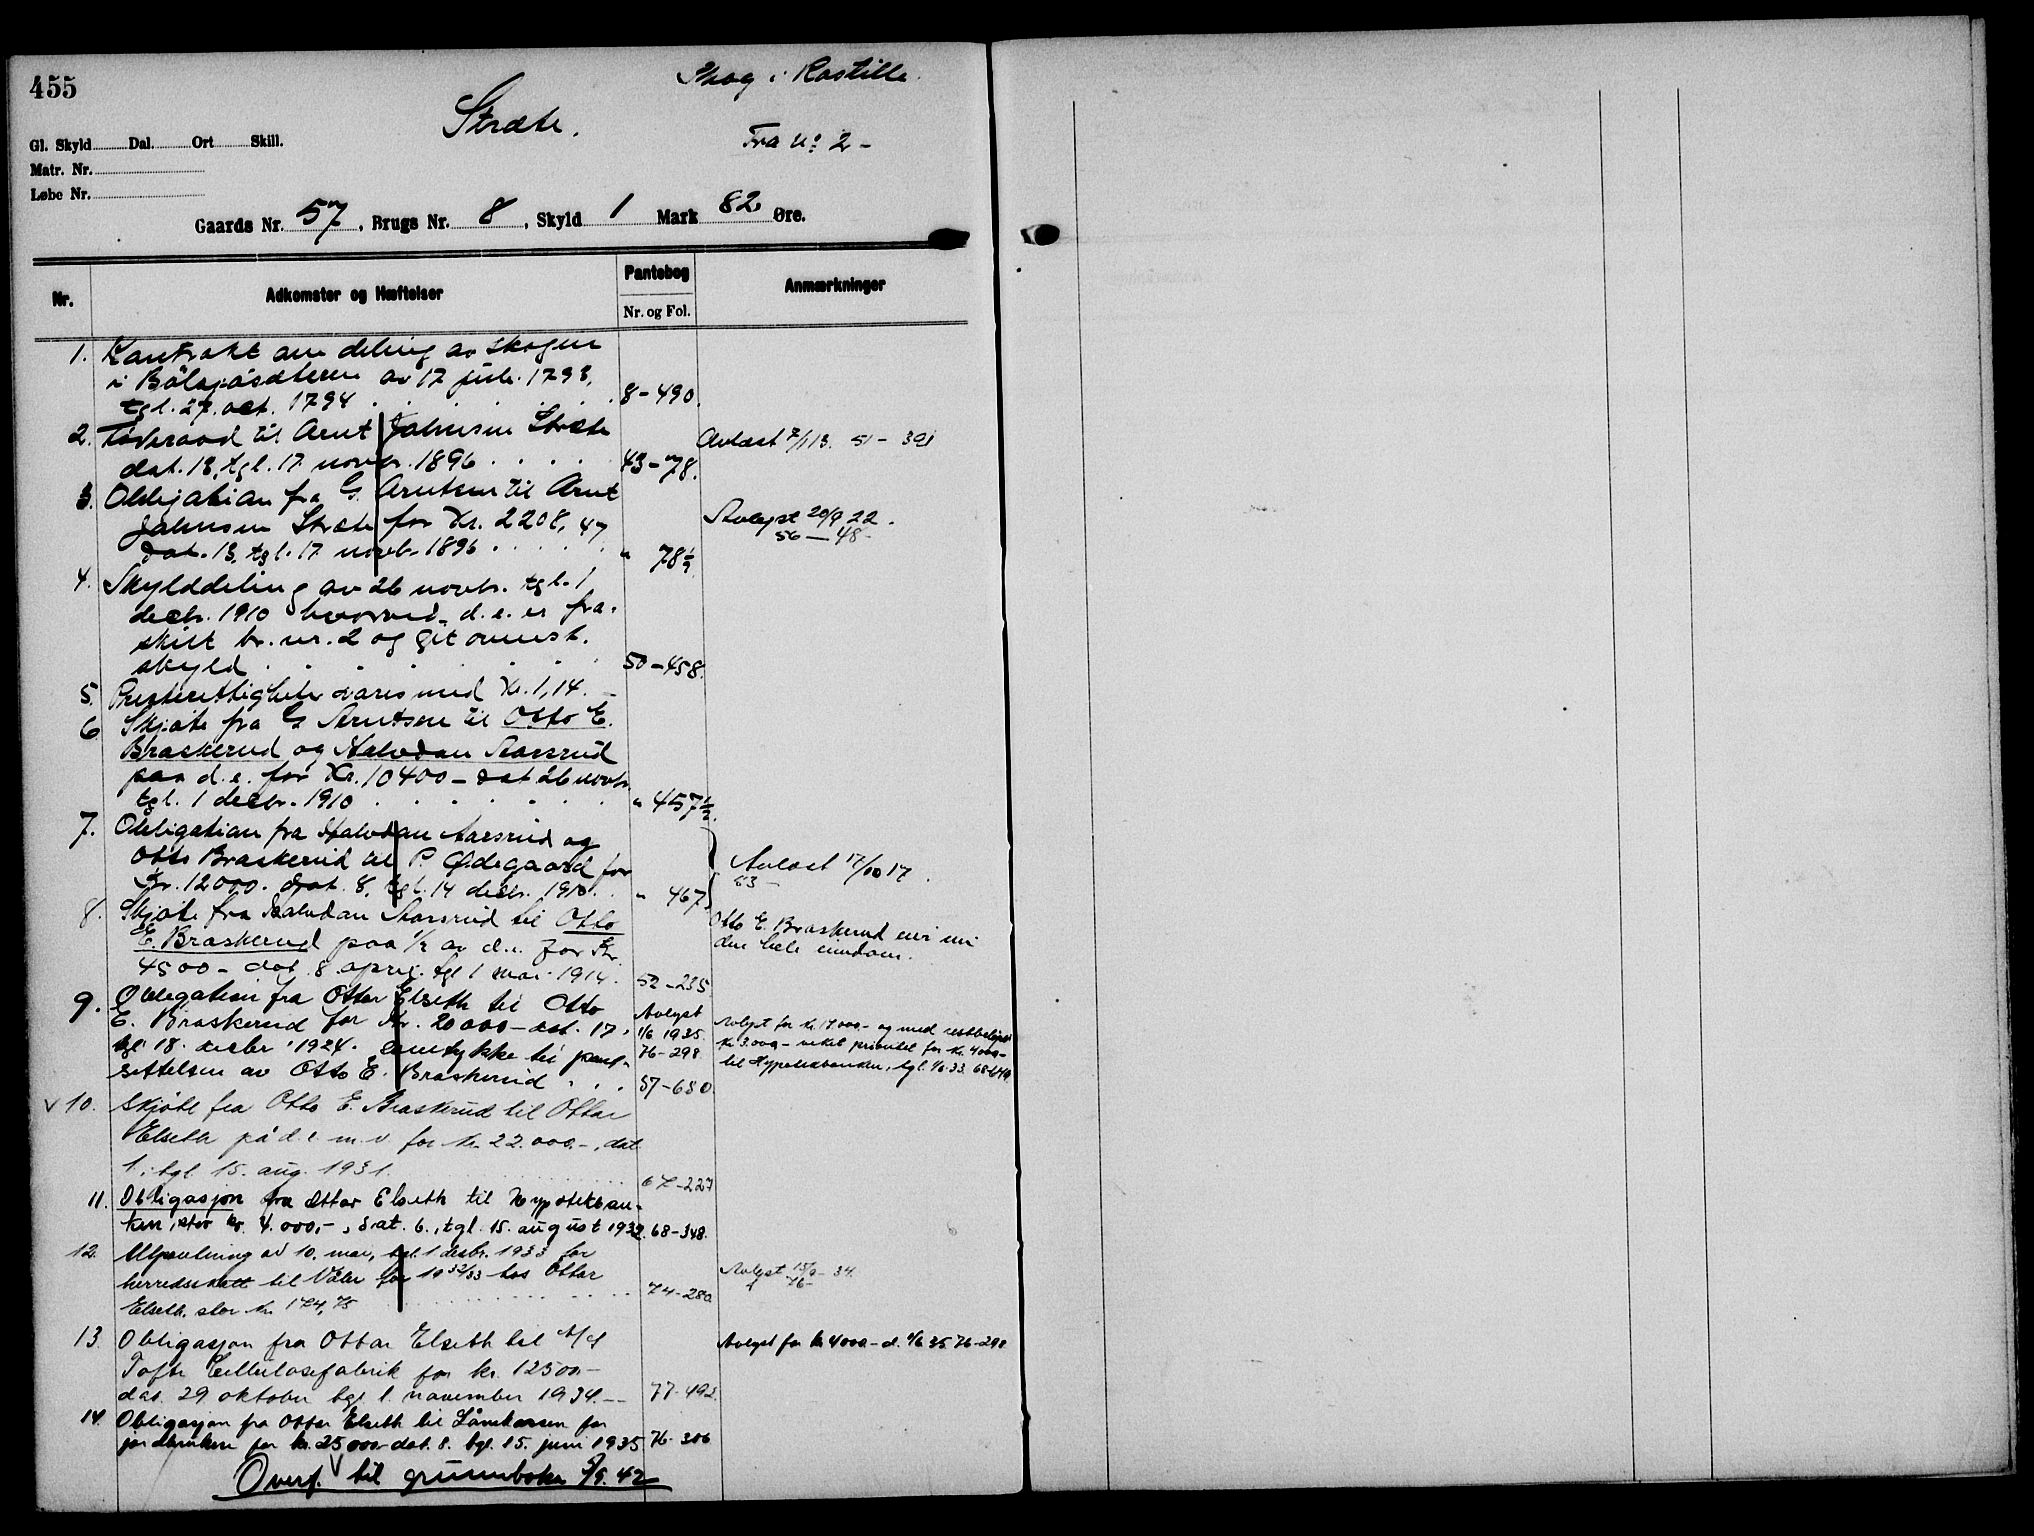 455
Skog i Kastille.
Stræte.
Fra No 2 -
Gl. Skyld Dal. Ort Skill.
Matr. Nr.
Løbe Nr.
Gaards Nr. 57, Brugs Nr. 8, Skyld 1 Mark 82 Øre.
Nr. Adkomster og Hæftelser Pantebog Nr. og Fol. Anmærkninger
1. Kontrakt om deling av skogen
i av 17 juli 1793,
tgl. 27. oct. 1794 . . . . 8-490.
2. Føderaad til Arnt Johnsen Stræte Avløst 7/1 13. 51-391
dat. 13, tgl. 17. novbr. 1896 . . . . 43-78.
3. Obligation fra G. Arntsen til Arnt
Johnsen Stræte for Kr. 2208,47 Avlyst 20/9 22.
dat. 13, tgl. 17 novbr. 1896 . . . . " 78 56-48-
4. Skylddeling av 26 novbr. tgl. 1
decbr. 1910 hvorved d.e. er fra-
skilt br. nr. 2 og git ovennst.
skyld . . . . . 50-458.
5. Presterettigheter svares med Kr. 1,14.
6 Skjøte fra G Arntsen til Otto E.
Braskerud og Halvdan Aarsrud
paa d.e. for Kr. 10400- dat 26 novbr
tgl. 1 decbr. 1910 . . . . " 457 1/2.
7. Obligation fra Halvdan Aarsrud og
Otto Braskerud til P. Ødegaard for Avløst 17/10 17.
Kr. 12000. dat. 8, tgl. 14 decbr. 1910. . " 467. 53-
8. Skjøte fra Halvdan Aarsrud til Otto
E. Braskerud paa 1/2 av d.e. for Kr. Otto E. Braskerud eier nu
4500- dat. 8 april tgl 1 mai 1914. 52-235 den hele eiendom.
9. Obligation fra Ottar Elseth til Otto
E. Braskerud for Kr. 20000- dat. 17, Avlyst 1/6 1935. 76-298
tgl 18. decbr 1924. Samtykke til pant-
settelsen av Otto E. Braskerud . . . 57-680.
Avlyst for kr. 17000.- og med restbeløpet
kr. 3.000- veket prioritet for kr. 4000-
til Hypotekbanken, tgl. 1/6 33. 68-
v 10. Skjøte fra Otto E. Braskerud til Ottar
Elseth på d.e. m.v. for kr. 22.000.-, dat
1, tgl. 15. aug. 1931. 67-227
11. Obligasjon fra Ottar Elseth til Hypotekban-
ken, stor kr. 4.000,-, dat. 6., tgl. 15. august 1932. 68-348.
12. Utpantning av 10. mai, tgl. 1 desbr. 1933 for
herredsskatt til Våler for 1932/33 hos Ottar Avlyst 15/9-34. 76-
Elseth, stor kr. 174,75 . . . . 74-280
13. Obligasjon fra Ottar Elseth til A/S Avlyst for kr 4000.- d. 1/6 35 76-298
Tofte Cellulosefabrik for kr. 12500.-
dat. 29 oktober tgl. 1. november 1934.- 77-492.
14. Obligasjon fra Ottar Elseth til Lånekassen for
jordbrukere for kr. 25000.- dat. 8. tgl. 15. juni 1935 76-306
Overf. til grunnboken 5/9. 42